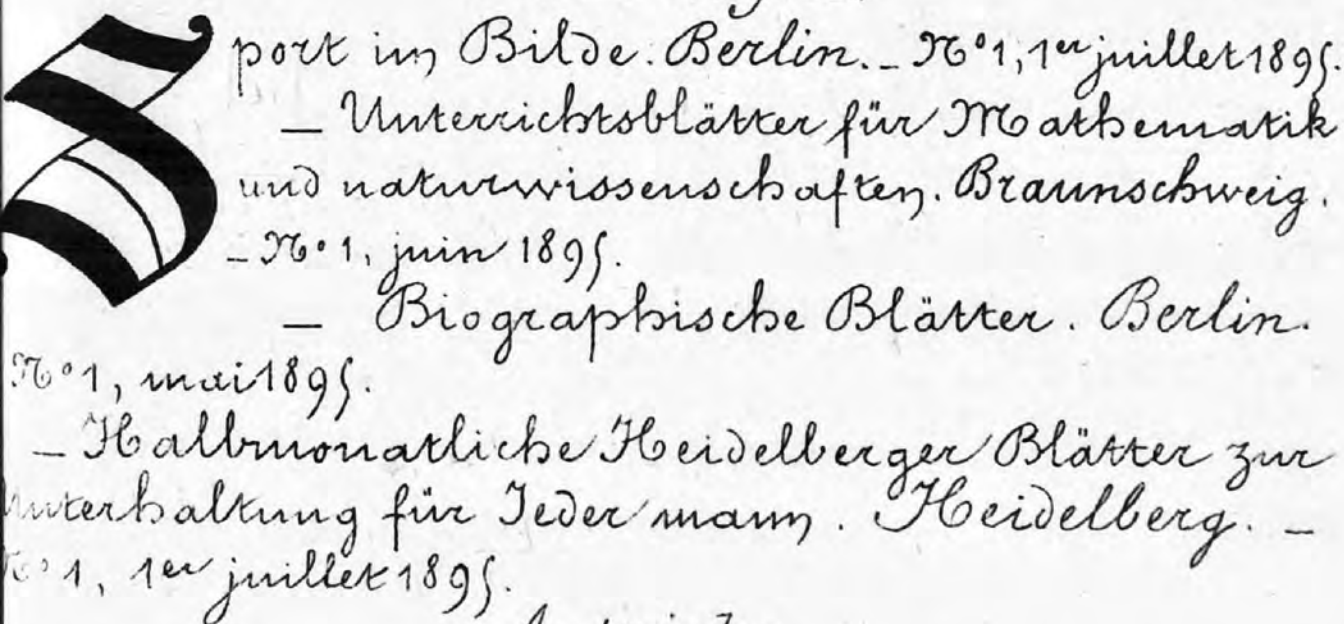 Sport im Bilde. Berlin. _ N° 1, 1er juillet 1895.
— Unterrichtsblätter für Mathematik
und naturwissenschaften. Braunschweig.
_ N° 1, juin 1895.
— Biographische Blätter. Berlin.
N° 1, mai 1895.
_ Halbmonatliche Heidelberger Blätter zur
Unterhaltung für Jedermann. Heidelberg. _
N° 1, 1er juillet 1895.